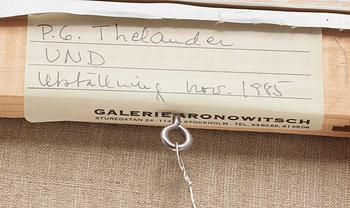 P.G. Thelander
UND
Utställning nov. 1985
GALERIE ARONOWITSCH
STUREGATAN 24 114 STOCKHOLM - TEL.